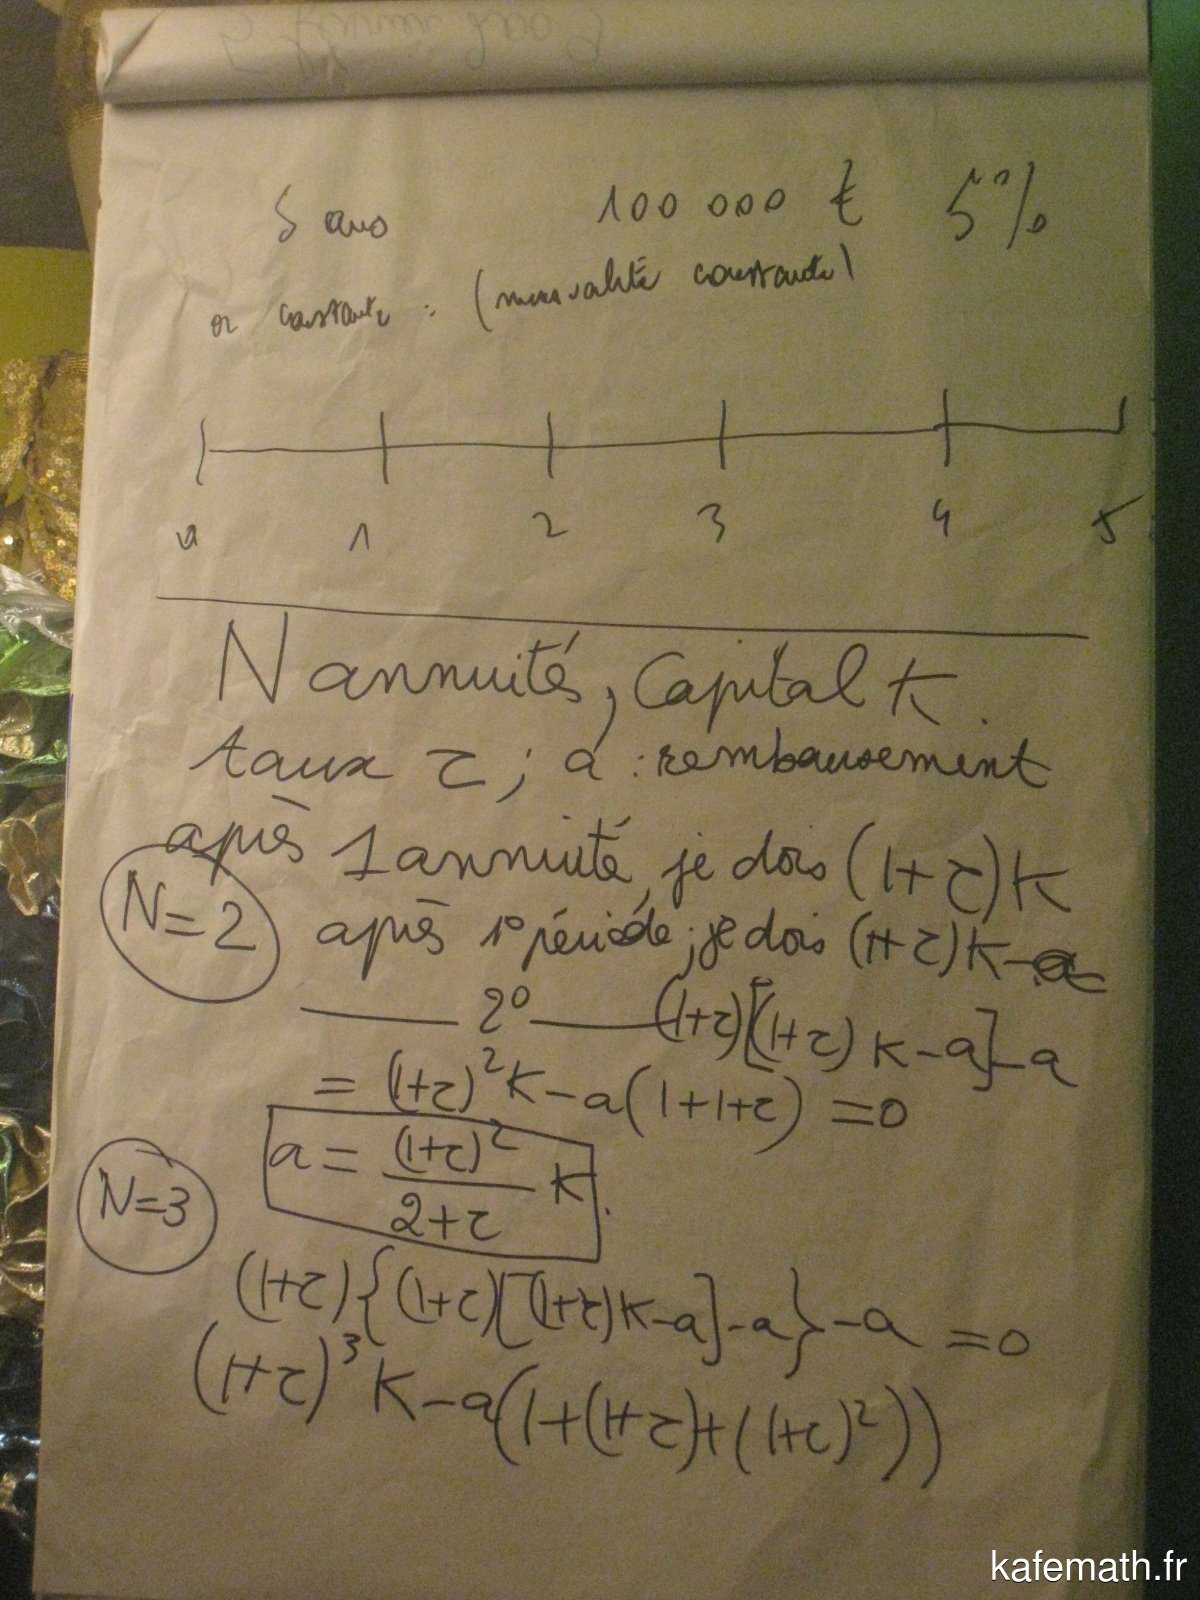 5 ans 100 000 € 5%
constante : (mensualité constante)
0 1 2 3 4 5
N annuités, Capital K.
taux τ ; a : remboursement
après 1 annuité, je dois (1+τ)K
N=2
après 1° période ; je dois (1+τ)K-a
—— 2° —— (1+τ)[(1+τ)K-a]-a
= (1+τ)²K-a(1+1+τ) = 0
a = (1+τ)²/2+τ K.
N=3
(1+τ){(1+τ)[(1+τ)K-a]-a}-a = 0
(1+τ)³K-a(1+(1+τ)+(1+τ)²))
kafemath.fr